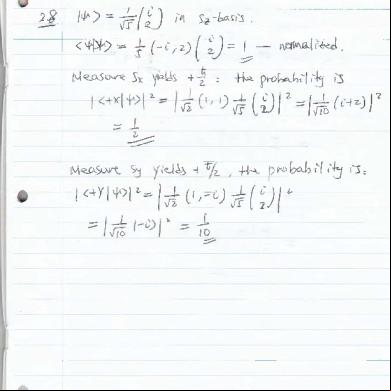 2.8 |ψ> = 1/√5 (i 2) in Sz-basis.
<ψ|ψ> = 1/5 (-i, 2) (i 2) = 1 — normalized.
Measure Sx yields + ħ/2 : the probability is
|<+X|ψ>|² = |1/√2 (1, 1) 1/√5 (i 2)|² = |1/√10 (i+2)|²
= 1/2
Measure Sy yields + ħ/2, the probability is:
|<+Y|ψ>|² = |1/√2 (1, -i) 1/√5 (i 2)|²
= |1/√10 (-i)|² = 1/10